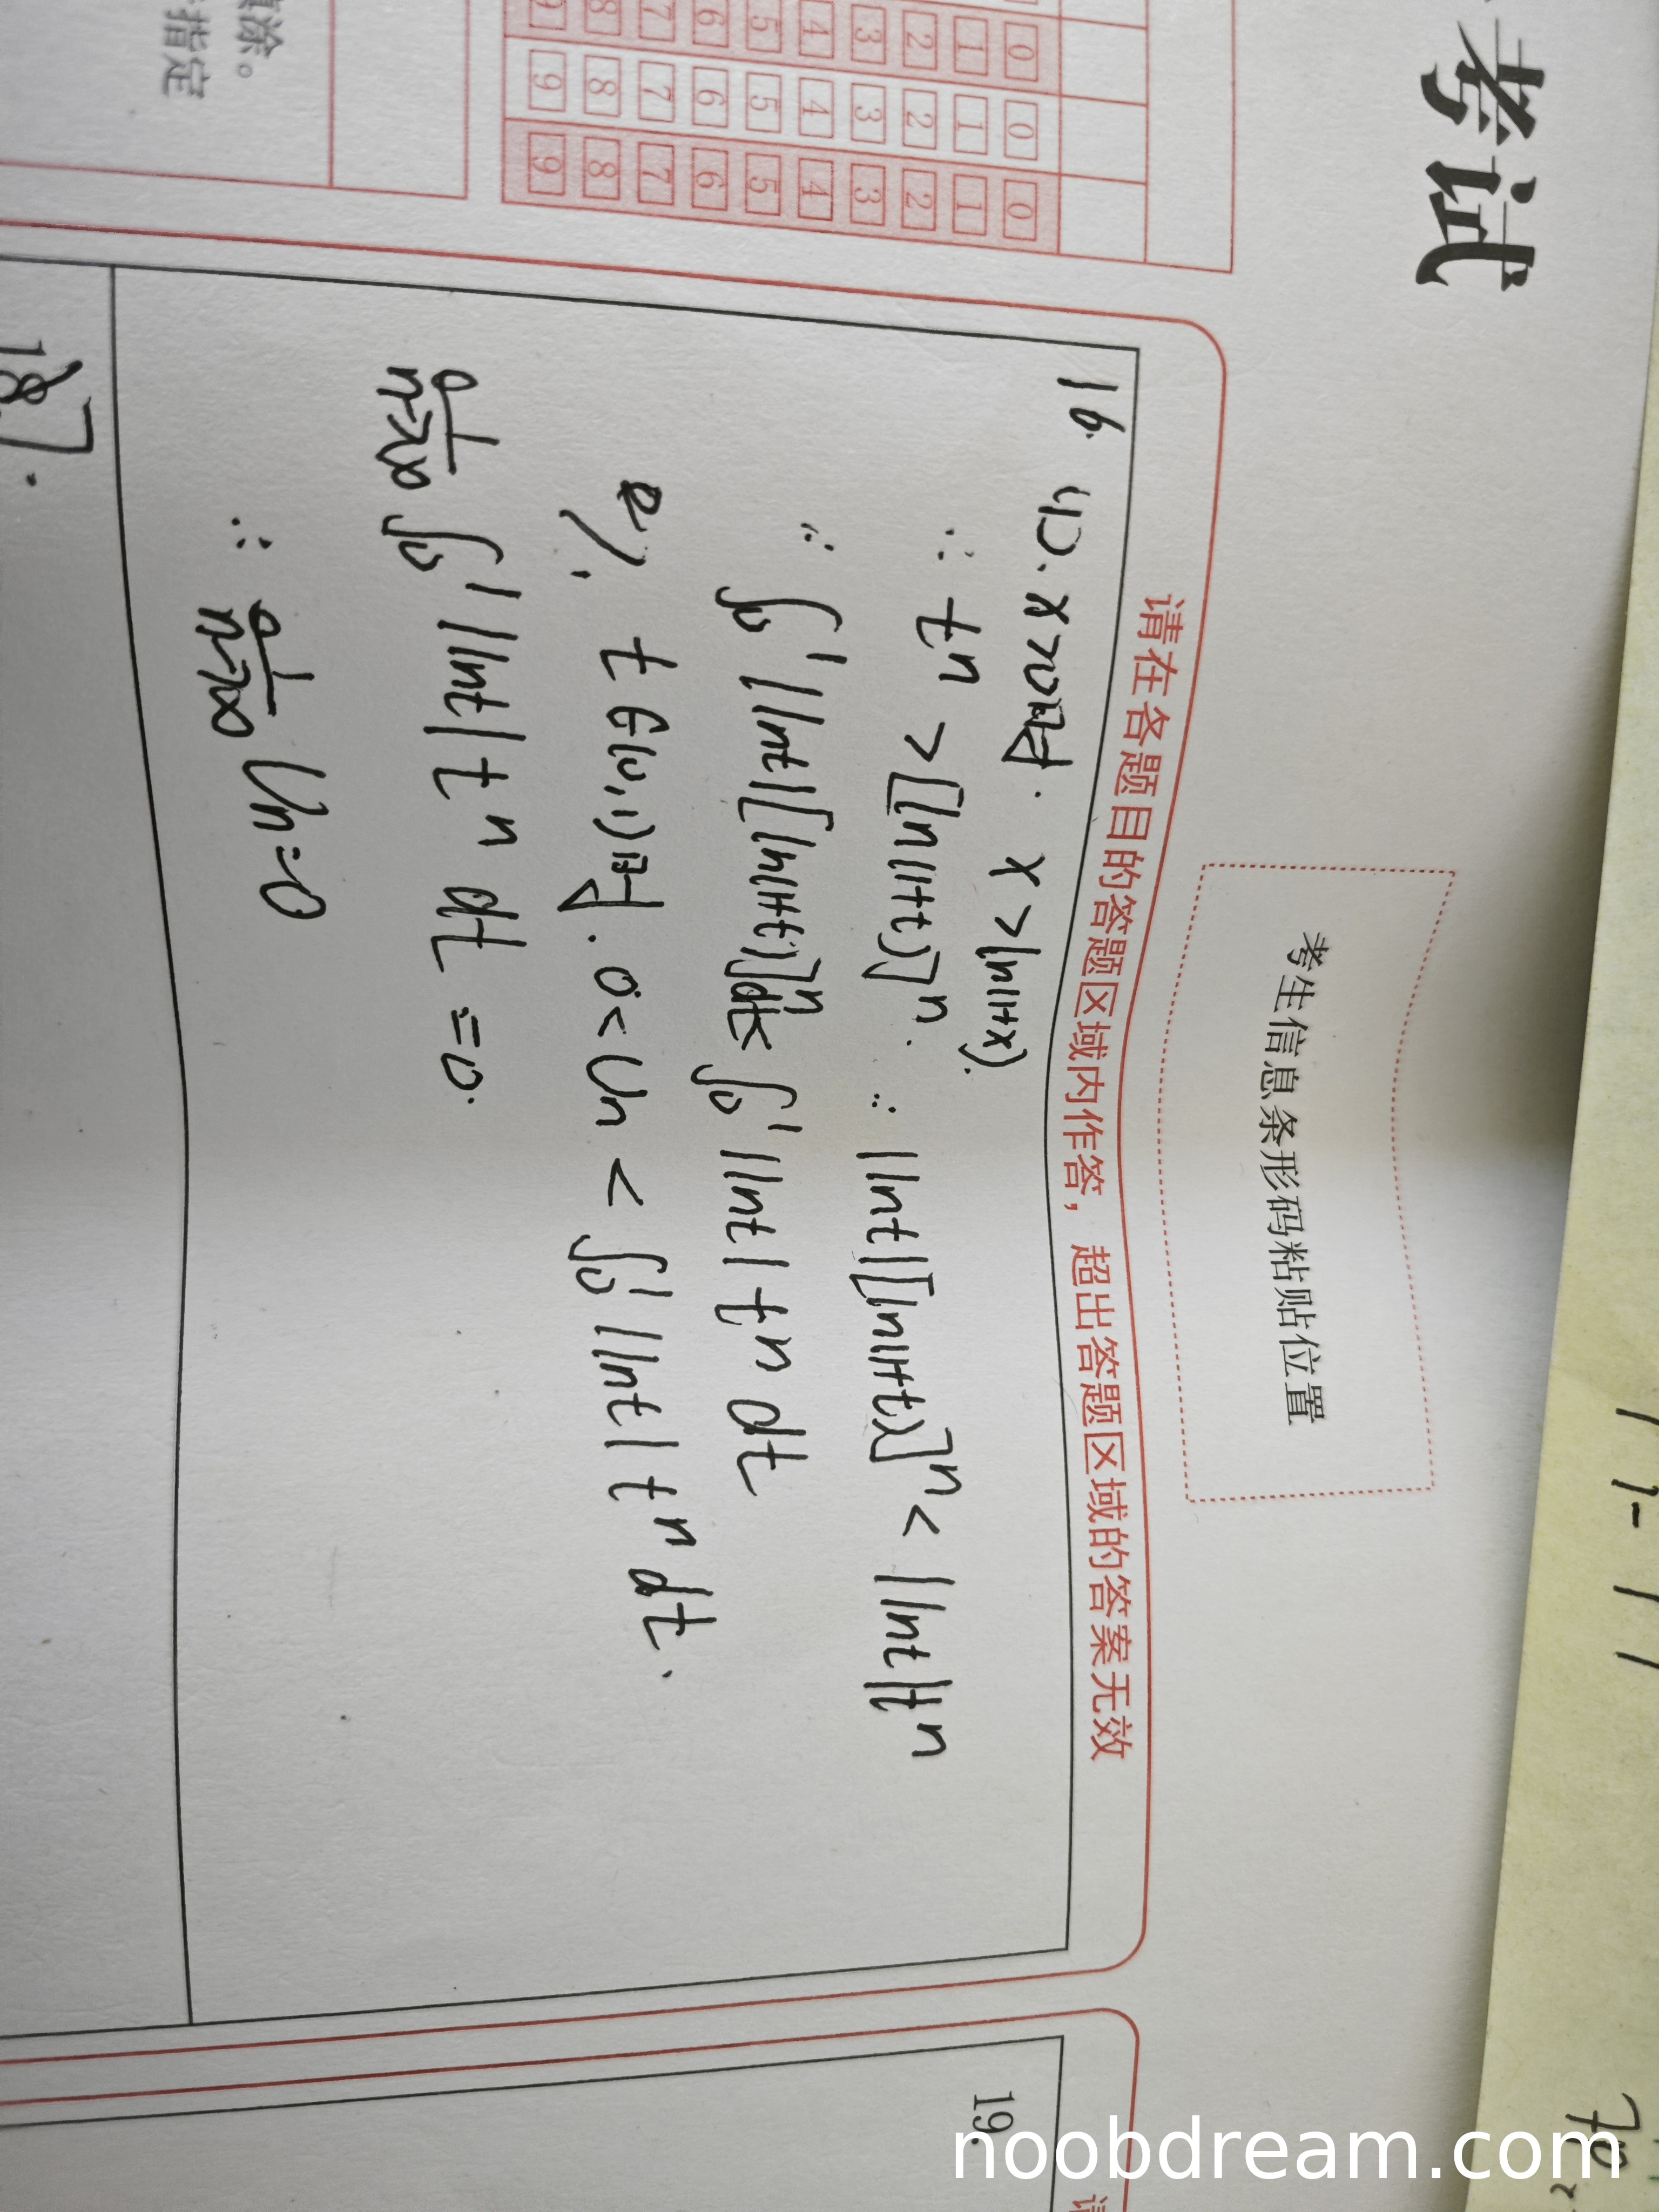 考试
填涂。
指定
0 1 2 3 4 5 6 7 8 9
0 1 2 3 4 5 6 7 8 9
0 1 2 3 4 5 6 7 8 9
考生信息条形码粘贴位置
请在各题目的答题区域内作答，超出答题区域的答案无效
16. (1). x>0时. x>ln(1+x).
∴ tⁿ >[ln(1+t)]ⁿ. ∴ |lnt|[ln(1+t)]ⁿ < |lnt|tⁿ
∴ ∫₀¹ |lnt|[ln(1+t)]ⁿdt< ∫₀¹ |lnt| tⁿ dt
2). t∈(0,1)时. 0< Un < ∫₀¹ |lnt| tⁿ dt.
n→∞ ∫₀¹ |lnt| tⁿ dt =0.
∴ n→∞ Un=0
18.
19.
noobdream.com